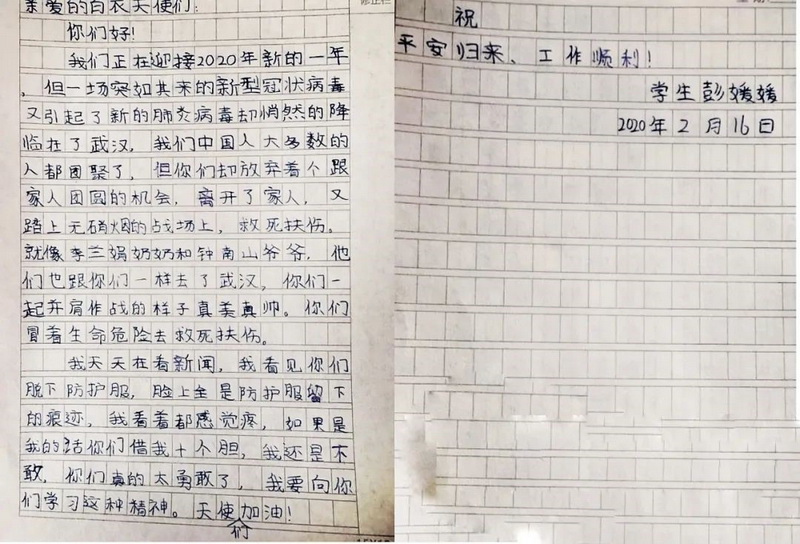 亲爱的白衣天使们:
你们好!
我们正在迎接2020年新的一年
,但一场突如其来的新型冠状病毒
又引起了新的肺炎病毒却悄然的降
临在了武汉,我们中国人大多数的
人都团聚了,但你们却放弃着个跟
家人团圆的机会,离开了家人,又
踏上无硝烟的战场上,救死扶伤。
就像李兰娟奶奶和钟南山爷爷,他
们也跟你们一样去了武汉,你们一
起并肩作战的样子真美真帅。你们
冒着生命危险去救死扶伤。
我天天在看新闻,我看见你们
脱下防护服,脸上全是防护服留下
的痕迹,我看着都感觉疼,如果是
我的话你们借我十个胆,我还是不
敢,你们真的太勇敢了,我要向你
们学习这种精神。天使们加油!
祝
平安归来、工作顺利!
学生彭媛媛
2020年2月16日